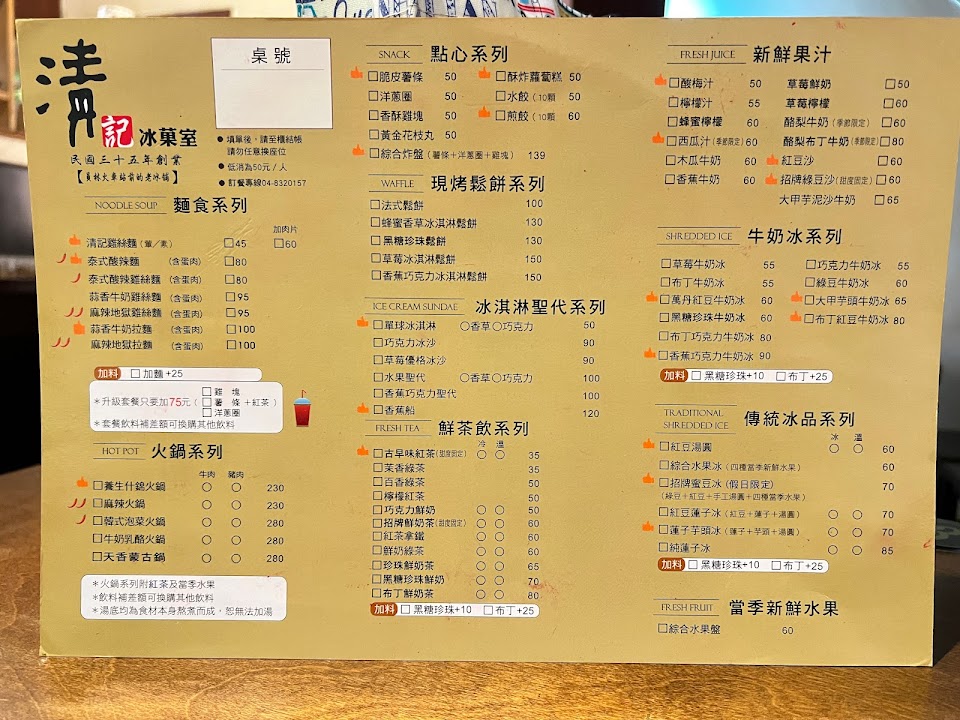 清記冰菓室
民國三十五年創業
【員林火車站前的老冰舖】
桌號
●填單後,請至櫃結帳
請勿任意換座位
●低消為50元/人
●訂餐專線04-8320157
NOODLE SOUP 麵食系列
加肉片
清記雞絲麵(葷/素) □45 □60
泰式酸辣麵 (含蛋肉) □80
泰式酸辣雞絲麵 (含蛋肉) □80
蒜香牛奶雞絲麵 (含蛋肉) □95
麻辣地獄雞絲麵 (含蛋肉) □95
蒜香牛奶拉麵 (含蛋肉) □100
麻辣地獄拉麵 (含蛋肉) □100
加料 □加麵+25
*升級套餐只要加75元(□雞塊 □薯條 □洋蔥圈 +紅茶)
*套餐飲料補差額可換購其他飲料
HOT POT 火鍋系列
牛肉 豬肉
□養生什錦火鍋 ○ ○ 230
□麻辣火鍋 ○ ○ 230
□韓式泡菜火鍋 ○ ○ 280
□牛奶乳酪火鍋 ○ ○ 280
□天香蒙古鍋 ○ ○ 280
*火鍋系列附紅茶及當季水果
*飲料補差額可換購其他飲料
*湯底均為食材本身熬煮而成,恕無法加湯
SNACK 點心系列
□脆皮薯條 50 □酥炸蘿蔔糕 50
□洋蔥圈 50 □水餃(10顆) 50
□香酥雞塊 50 □煎餃(10顆) 60
□黃金花枝丸 50
□綜合炸盤(薯條+洋蔥圈+雞塊) 139
WAFFLE 現烤鬆餅系列
□法式鬆餅 100
□蜂蜜香草冰淇淋鬆餅 130
□黑糖珍珠鬆餅 130
□草莓冰淇淋鬆餅 150
□香蕉巧克力冰淇淋鬆餅 150
ICE CREAM SUNDAE 冰淇淋聖代系列
□單球冰淇淋 ○香草○巧克力 50
□巧克力冰沙 90
□草莓優格冰沙 90
□水果聖代 ○香草○巧克力 100
□香蕉巧克力聖代 100
□香蕉船 120
FRESH TEA 鮮茶飲系列
冷 溫
□古早味紅茶(甜度固定) ○ ○ 35
□茉香綠茶 35
□百香綠茶 50
□檸檬紅茶 50
□巧克力鮮奶 ○ ○ 50
□招牌鮮奶茶(甜度固定) ○ ○ 60
□紅茶拿鐵 ○ ○ 60
□鮮奶綠茶 ○ ○ 60
□珍珠鮮奶茶 ○ ○ 65
□黑糖珍珠鮮奶 ○ ○ 70
□布丁鮮奶茶 ○ ○ 80
加料 □黑糖珍珠+10 □布丁+25
FRESH JUICE 新鮮果汁
□酸梅汁 50 草莓鮮奶 □50
□檸檬汁 55 草莓檸檬 □60
□蜂蜜檸檬 60 酪梨牛奶(季節限定) □60
□西瓜汁(季節限定) 60 酪梨布丁牛奶(季節限定) □80
□木瓜牛奶 60 紅豆沙 □60
□香蕉牛奶 60 招牌綠豆沙(甜度固定) □60
大甲芋泥沙牛奶 □65
SHREDDED ICE 牛奶冰系列
□草莓牛奶冰 55 □巧克力牛奶冰 55
□布丁牛奶冰 55 □綠豆牛奶冰 60
□萬丹紅豆牛奶冰 60 □大甲芋頭牛奶冰 65
□黑糖珍珠牛奶冰 60 □布丁紅豆牛奶冰 80
□布丁巧克力牛奶冰 80
□香蕉巧克力牛奶冰 90
加料 □黑糖珍珠+10 □布丁+25
TRADITIONAL SHREDDED ICE 傳統冰品系列
冰 溫
□紅豆湯圓 ○ ○ 60
□綜合水果冰(四種當季新鮮水果) 60
□招牌蜜豆冰(假日限定) 70
(綠豆+紅豆+手工湯圓+四種當季水果)
□紅豆蓮子冰(紅豆+蓮子+湯圓) ○ ○ 70
□蓮子芋頭冰(蓮子+芋頭+湯圓) ○ ○ 70
□純蓮子冰 ○ ○ 85
加料 □黑糖珍珠+10 □布丁+25
FRESH FRUIT 當季新鮮水果
□綜合水果盤 60